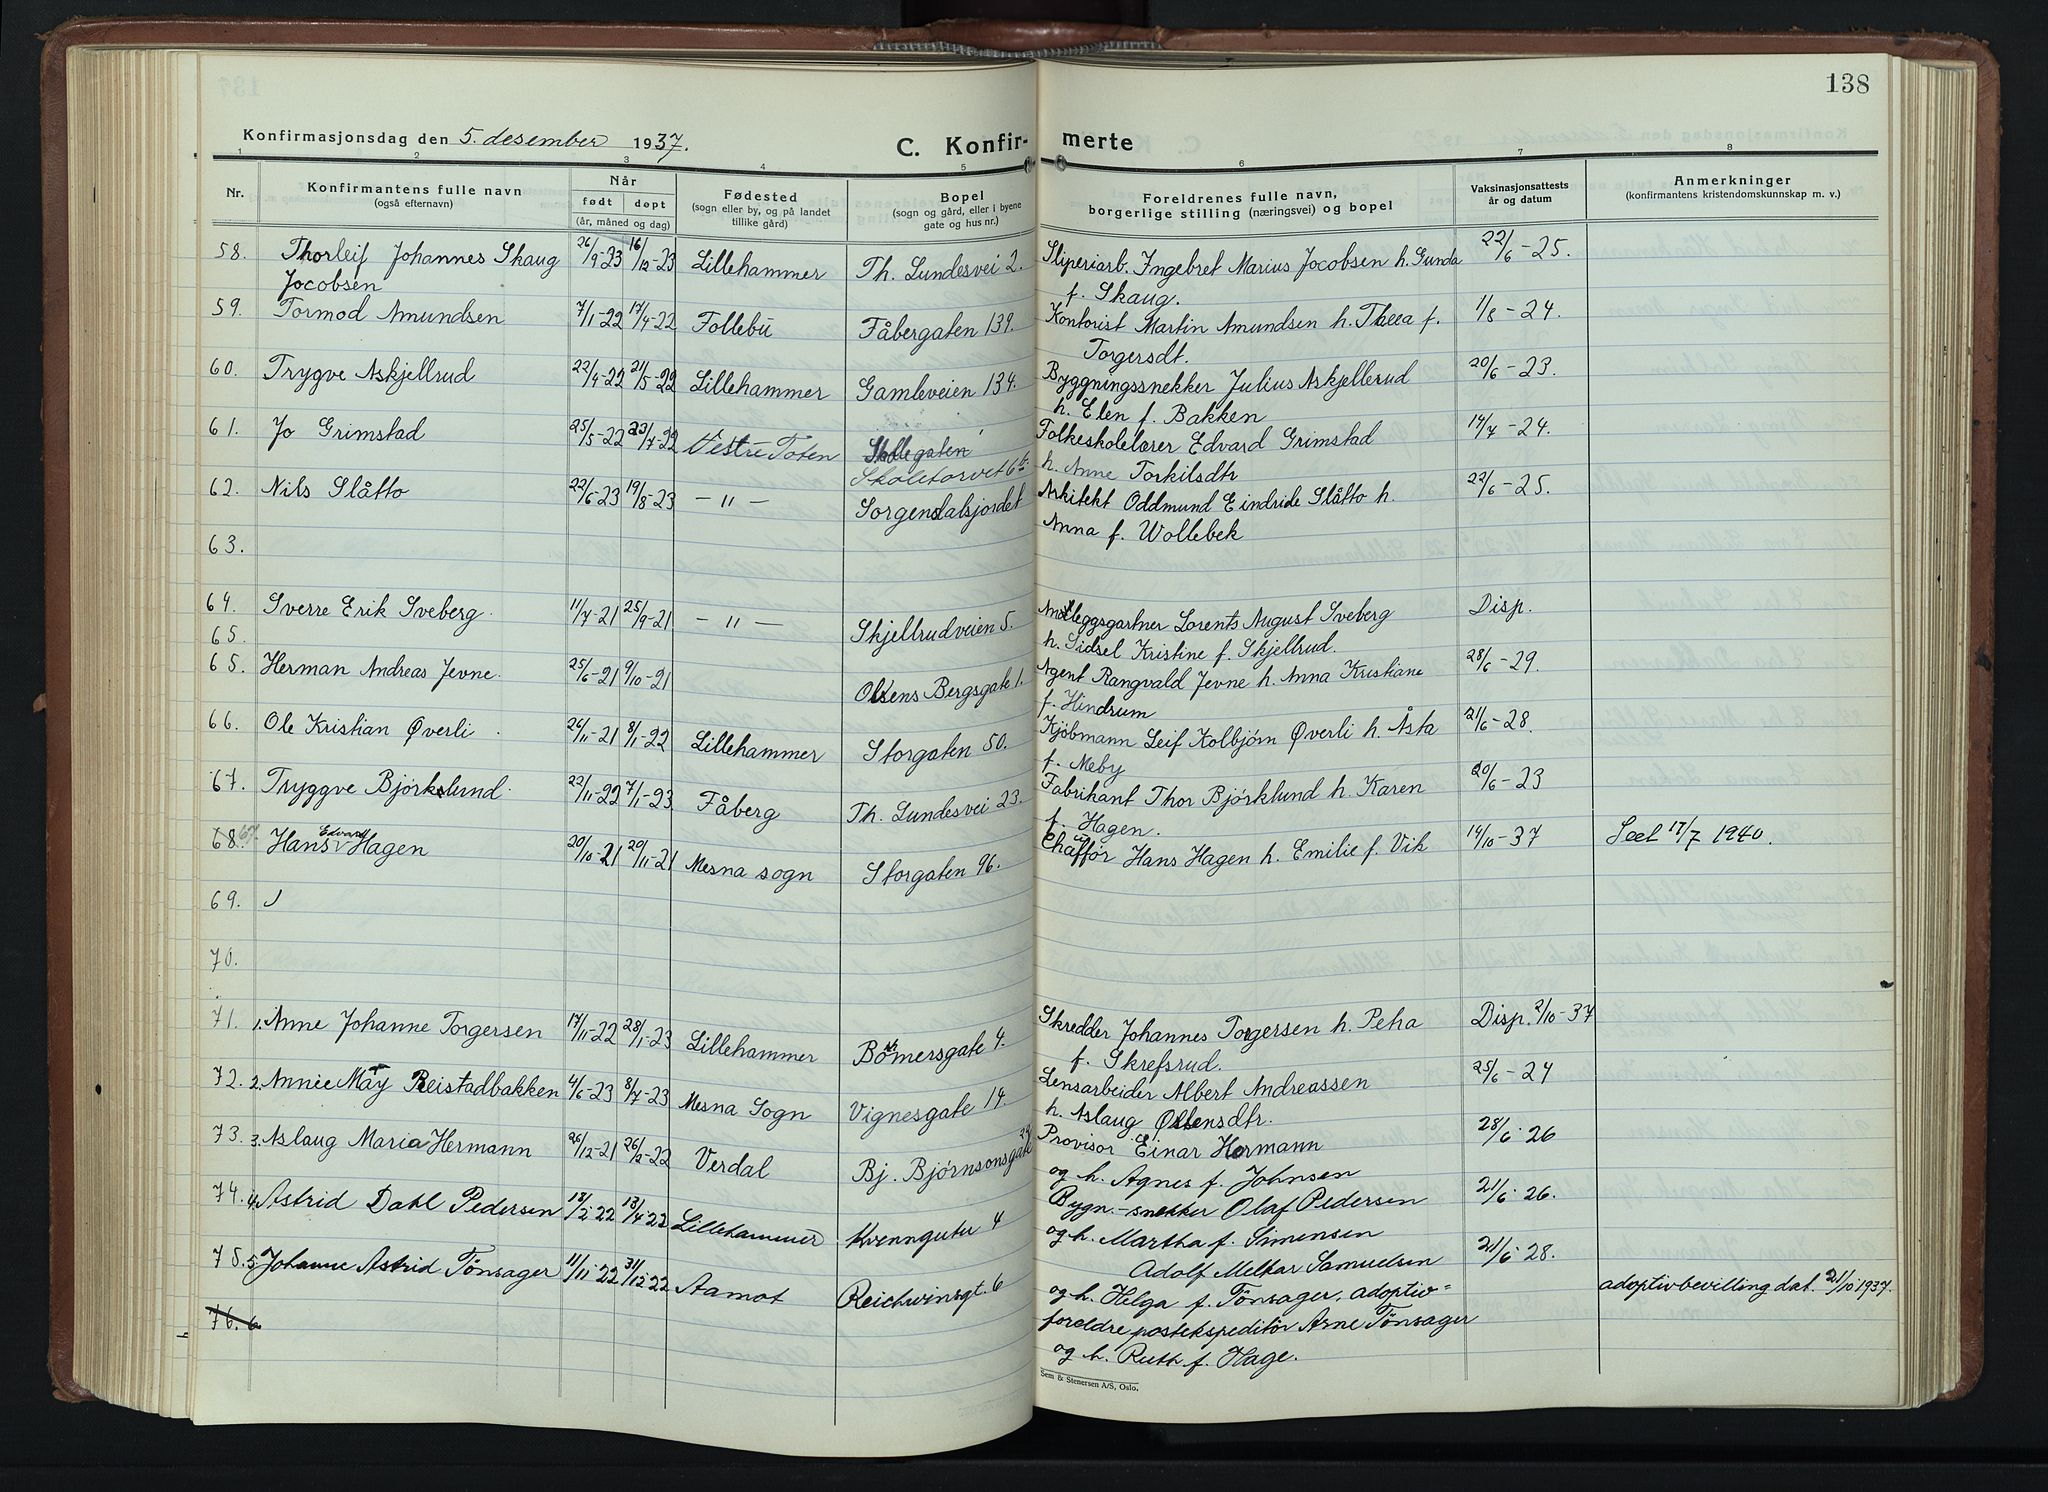 138
Konfirmasjonsdag den 5. desember 1937.
C. Konfir-
merte
1 2 3 4 5 6 7 8
Nr.
Konfirmantens fulle navn
(også efternavn)
Når
født døpt
(år, måned og dag)
Fødested
(sogn eller by, og på landet
tillike gård)
Bopel
(sogn og gård, eller i byene
gate og hus nr.)
Foreldrenes fulle navn,
borgerlige stilling (næringsvei) og bopel
Vaksinasjonsattests
år og datum
Anmerkninger
(konfirmantens kristendomskunnskap m. v.)
58. Thorleif Johannes Skaug 26/9-23 16/12-23 Lillehammer Th. Lundesvei 2. Sliperiarb. Ingebret Marius Jocobsen h. Gunda 22/6-25.
Jocobsen f. Skaug.
59. Tormod Amundsen 7/1-22 17/4-22 Follebu Fåbergaten 139. Kontorist Martin Amundsen h. Thea f. 1/8-24.
Torgersdt.
60. Trygve Askjellrud 22/4-22 21/5-22 Lillehammer Gamleveien 134. Byggningssnekker Julius Askjellerud 20/6-23.
h. Elen f. Bakken
61. Jo Grimstad 25/5-22 23/7-22 Vestre Toten Skolegaten Folkeskolelærer Edvard Grimstad 14/7-24.
Skoletorvet 6 b. h. Anne Torkilsdtr
62. Nils Slåtto 22/6-23 19/8-23 -"- Sorgendalsjordet Arkitekt Oddmund Eindride Slåtto h. 22/6-25.
Anna f. Wollebek
63.
64. Sverre Erik Sveberg. 11/7-21 25/9-21 -"- Skjellrudveien 5. Anleggsgartner Lorents August Sveberg Disp.
65. h. Sidsel Kristine f. Skjellrud.
65. Herman Andreas Jevne. 25/6-21 9/10-21 Olsens Bergsgate 1. Agent Rangvald Jevne h. Anna Kristiane 28/6-29.
f. Hindrum
66. Ole Kristian Øverli 26/11-21 8/1-22 Lillehammer Storgaten 50. Kjøbmann Leif Kolbjørn Øverli h. Åsta 21/6-28.
f. Meby
67. Tryggve Bjørklund. 22/11-22 7/1-23 Fåberg Th. Lundesvei 23. Fabrikant Thor Bjørklund h. Karen 20/6-23
f. Hagen.
68. 67. Hans Edvard Hagen 20/10-21 20/11-21 Mesna sogn Storgaten 96. Chaffør Hans Hagen h. Emilie f. Vik 14/10-37 Leet 17/7 1940.
69.
70.
71. 1. Anne Johanne Torgersen 17/11-22 28/1-23 Lillehammer Bømersgate 4. Skredder Johannes Torgersen h. Peha Disp. 2/10-37
f. Skrefsrud.
72. 2. Annie May Reistadbakken 4/6-23 8/7-23 Mesna Sogn Vignesgate 14. Lensarbeider Albert Andreassen 25/6-24
h. Aslaug Østensdtr.
73. 3. Aslaug Maria Hermann 26/12-21 26/2-22 Verdal Bj. Bjørnsonsgate Provisor Einar Hermann 28/6-26
og h. Agnes f. Johnsen
74. 4. Astrid Dahl Pedersen 18/2-22 13/4-22 Lillehammer Kvenngutu 4 Bygn.-snekker Olaf Pedersen 21/6-26.
og h. Martha f. Simensen
75. 5. Johanne Astrid Tønsager 11/11-22 31/12-22 Aamot Reichwinsgt. 6 Adolf Melkar Samuelsen 21/6-28.
og h. Helga f. Tønsager, adoptiv= adoptivbevilling dat. 21/10 1937.
76. 6 foreldre postekspeditør Arne Tønsager
og h. Ruth f. Hage.
Sem & Stenersen A/S, Oslo.